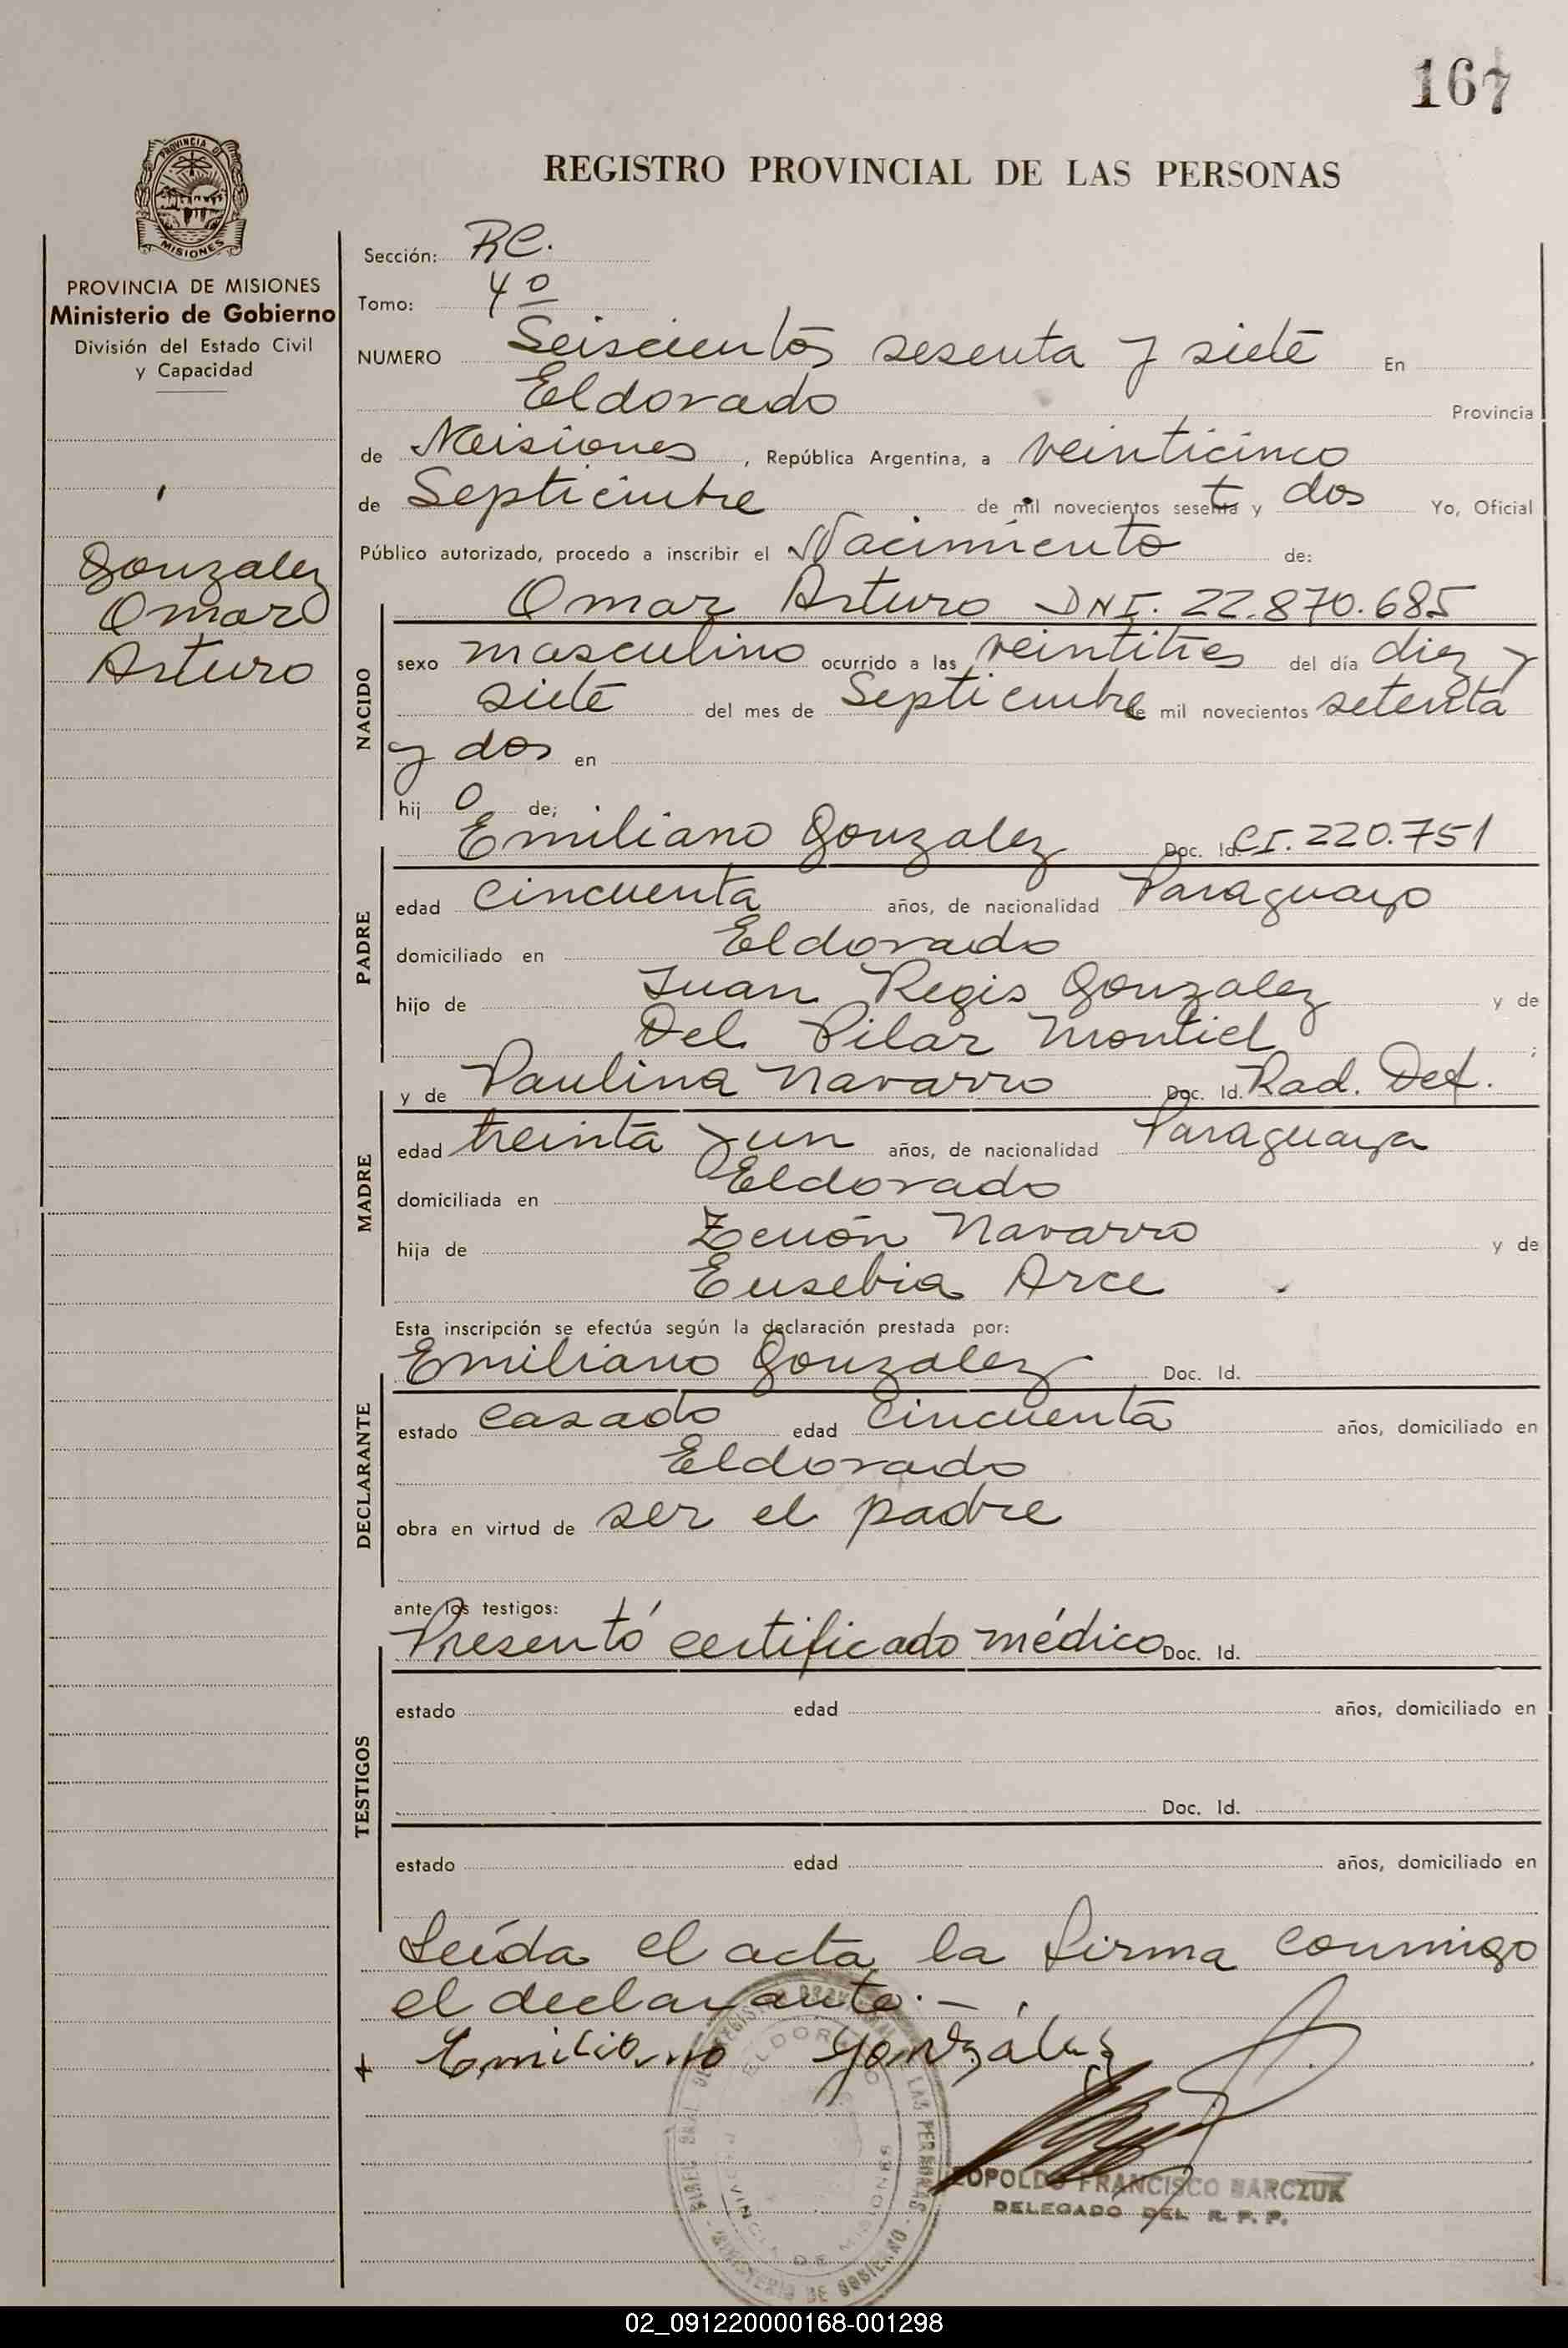 167
REGISTRO PROVINCIAL DE LAS PERSONAS
PROVINCIA DE MISIONES
PROVINCIA DE MISIONES
Ministerio de Gobierno
División del Estado Civil
y Capacidad
Gonzalez
Omar
Arturo
Sección: RC.
Tomo: 4º
NUMERO Seiscientos sesenta y siete En
Eldorado Provincia
de Misiones, República Argentina, a veinticinco
de Septiembre de mil novecientos sesenta y dos Yo, Oficial
Público autorizado, procedo a inscribir el Nacimiento de:
NACIDO
Omar Arturo DNI. 22.870.685
sexo masculino ocurrido a las veintitres del día diez y
siete del mes de Septiembre de mil novecientos setenta
y dos en
hij o de;
PADRE
Emiliano Gonzalez Doc. Id. CI. 220.751
edad cincuenta años, de nacionalidad Paraguayo
domiciliado en Eldorado
hijo de Juan Regis Gonzalez y de
Del Pilar Montiel ;
MADRE
y de Paulina Navarro Doc. Id. Rad. Def.
edad treinta y un años, de nacionalidad Paraguaya
domiciliada en Eldorado
hija de Zenón Navarro y de
Eusebia Arce
Esta inscripción se efectúa según la declaración prestada por:
DECLARANTE
Emiliano Gonzalez Doc. Id.
estado casado edad cincuenta años, domiciliado en
Eldorado
obra en virtud de ser el padre
ante los testigos:
TESTIGOS
Presentó certificado médico Doc. Id.
estado edad años, domiciliado en
Doc. Id.
estado edad años, domiciliado en
Leída el acta, la firma conmigo
el declarante.-
Emiliano González
ELDORADO
PROVINCIA DE MISIONES
MINISTERIO DE GOBIERNO
LEOPOLDO FRANCISCO BARCZUK
DELEGADO DEL R. P. P.
02_091220000168-001298